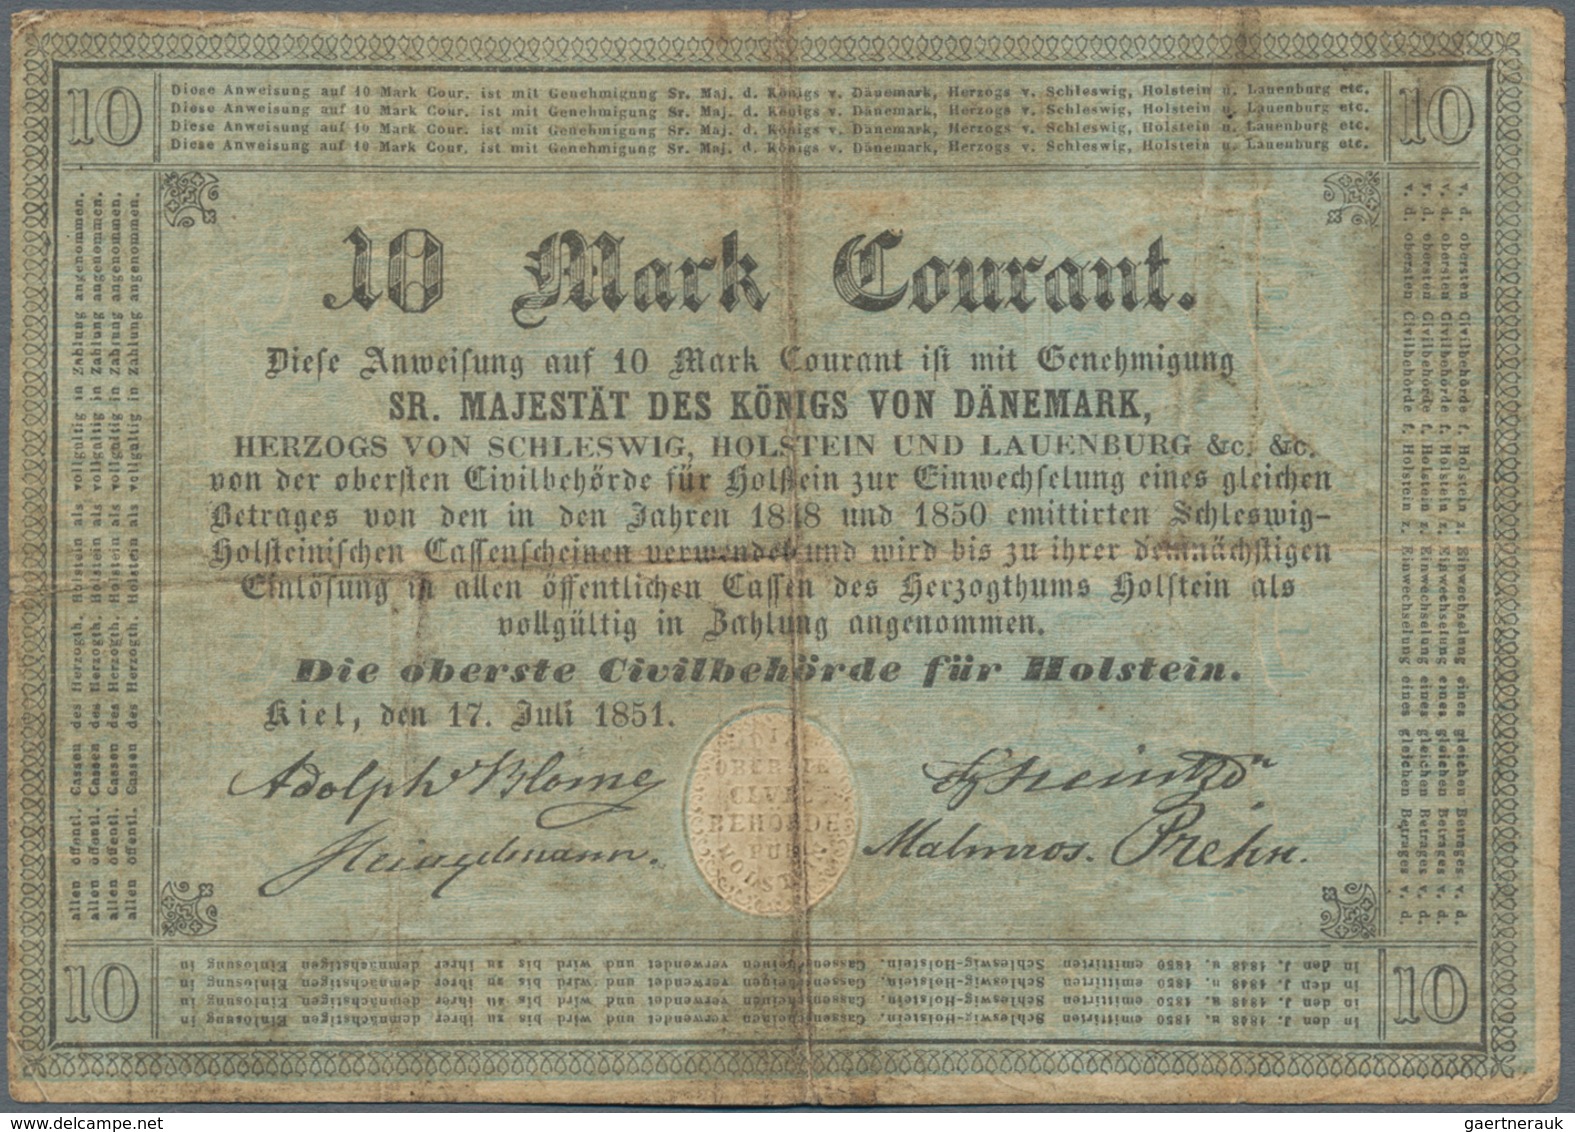 10
Diese Anweisung auf 10 Mark Cour. ist mit Genehmigung Sr. Maj. d. Königs v. Dänemark, Herzogs v. Schleswig, Holstein u. Lauenburg etc.
Diese Anweisung auf 10 Mark Cour. ist mit Genehmigung Sr. Maj. d. Königs v. Dänemark, Herzogs v. Schleswig, Holstein u. Lauenburg etc.
Diese Anweisung auf 10 Mark Cour. ist mit Genehmigung Sr. Maj. d. Königs v. Dänemark, Herzogs v. Schleswig, Holstein u. Lauenburg etc.
Diese Anweisung auf 10 Mark Cour. ist mit Genehmigung Sr. Maj. d. Königs v. Dänemark, Herzogs v. Schleswig, Holstein u. Lauenburg etc.
10
v. d. obersten Civilbehörde f. Holstein z. Einwechselung eines gleichen Betrages v. d.
v. d. obersten Civilbehörde f. Holstein z. Einwechselung eines gleichen Betrages v. d.
v. d. obersten Civilbehörde f. Holstein z. Einwechselung eines gleichen Betrages v. d.
v. d. obersten Civilbehörde f. Holstein z. Einwechselung eines gleichen Betrages v. d.
10 Mark Courant.
Diese Anweisung auf 10 Mark Courant ist mit Genehmigung
SR. MAJESTÄT DES KÖNIGS VON DÄNEMARK,
HERZOGS VON SCHLESWIG, HOLSTEIN UND LAUENBURG &c. &c.
von der obersten Civilbehörde für Holstein zur Einwechselung eines gleichen
Betrages von den in den Jahren 1848 und 1850 emittirten Schleswig-
Holsteinischen Cassenscheinen verwendet und wird bis zu ihrer demnächstigen
Einlösung in allen öffentlichen Cassen des Herzogthums Holstein als
vollgültig in Zahlung angenommen.
Die oberste Civilbehörde für Holstein.
Kiel, den 17. Juli 1851.
Adolph Blome
Heintze
Malmros. Prehn.
DIE
OBERSTE
CIVIL
BEHÖRDE
FÜR
HOLSTEIN
10
in den J. 1848 u. 1850 emittirten Schleswig-Holstein. Cassenscheinen verwendet und wird bis zu ihrer demnächstigen Einlösung in
in den J. 1848 u. 1850 emittirten Schleswig-Holstein. Cassenscheinen verwendet und wird bis zu ihrer demnächstigen Einlösung in
in den J. 1848 u. 1850 emittirten Schleswig-Holstein. Cassenscheinen verwendet und wird bis zu ihrer demnächstigen Einlösung in
in den J. 1848 u. 1850 emittirten Schleswig-Holstein. Cassenscheinen verwendet und wird bis zu ihrer demnächstigen Einlösung in
10
allen öffentl. Cassen des Herzogth. Holstein als vollgültig in Zahlung angenommen.
allen öffentl. Cassen des Herzogth. Holstein als vollgültig in Zahlung angenommen.
allen öffentl. Cassen des Herzogth. Holstein als vollgültig in Zahlung angenommen.
allen öffentl. Cassen des Herzogth. Holstein als vollgültig in Zahlung angenommen.
www.delcampe.net
gaertnerauk